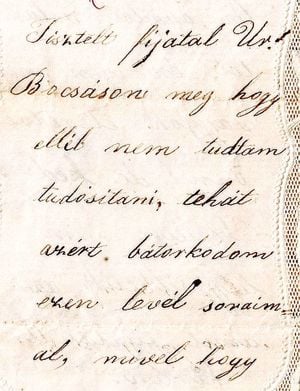 Tisztelt fijatal Ur!
Bocsáson meg hogy
Mil nem tudtam
tudósitani, tehát
azért bátorkodom
ezen levél soraim-
al, mivel hogy